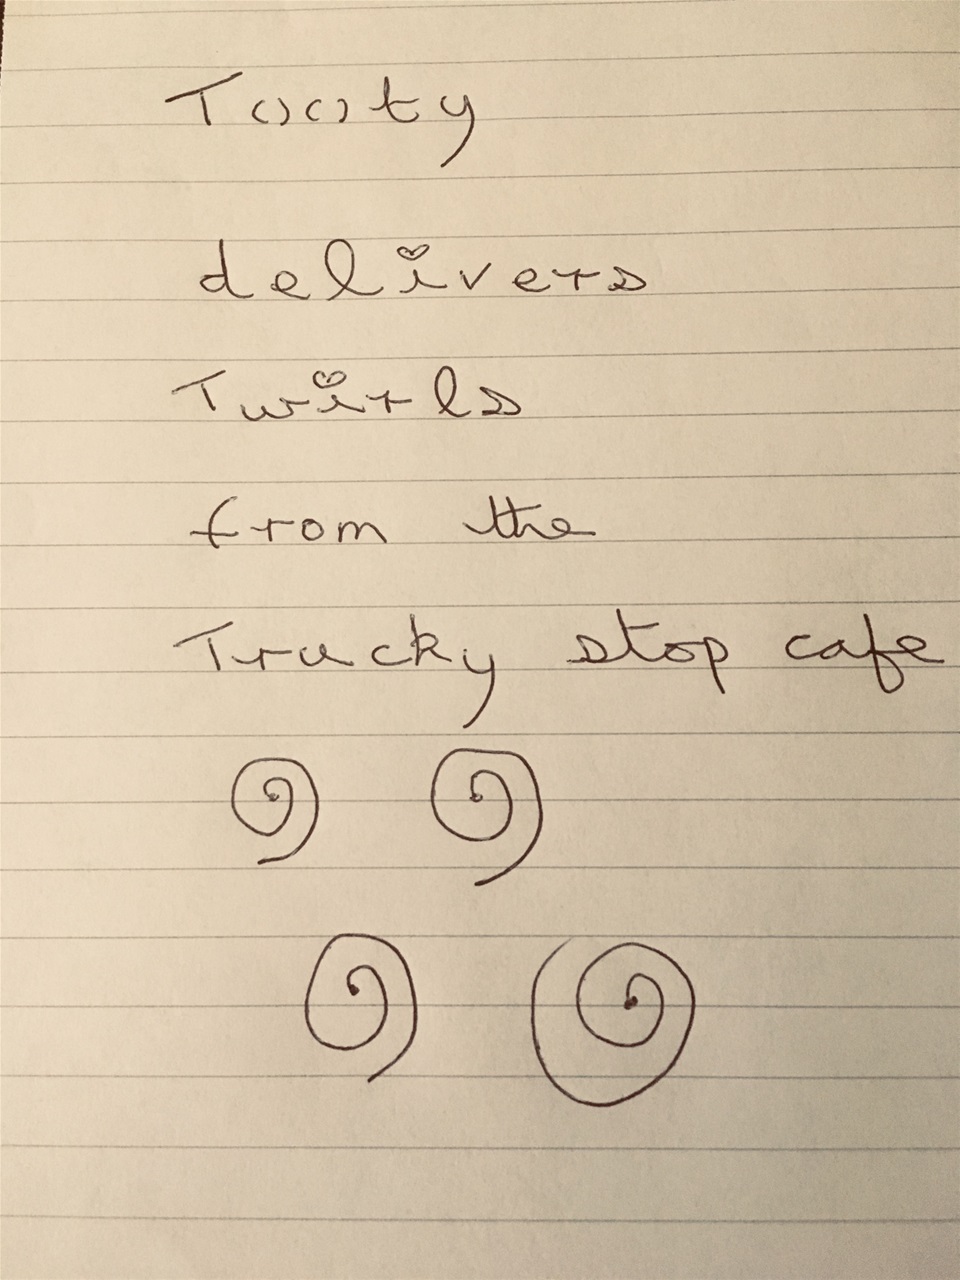 Tooty
delivers
Twirls
from the
Trucky stop cafe